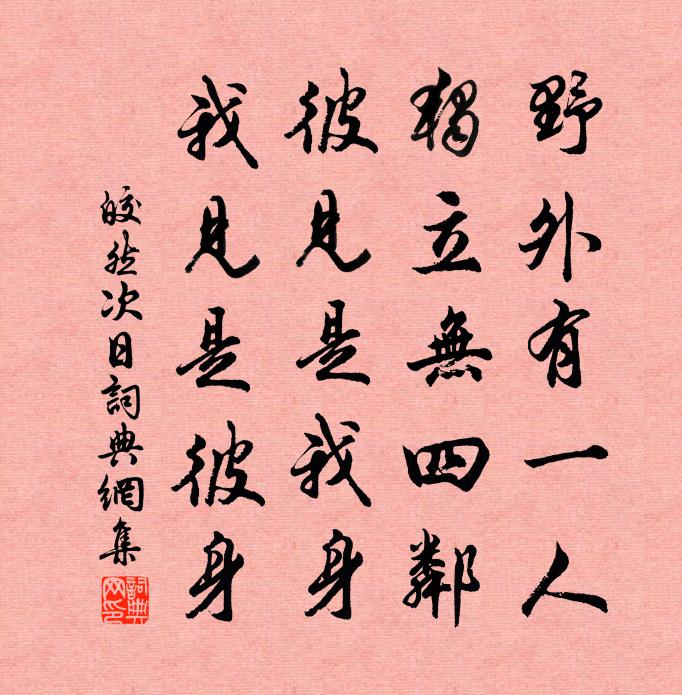 野外有一人
獨立無四鄰
彼見是我身
我見是彼身
皎然次日詞典網集
詞典網印